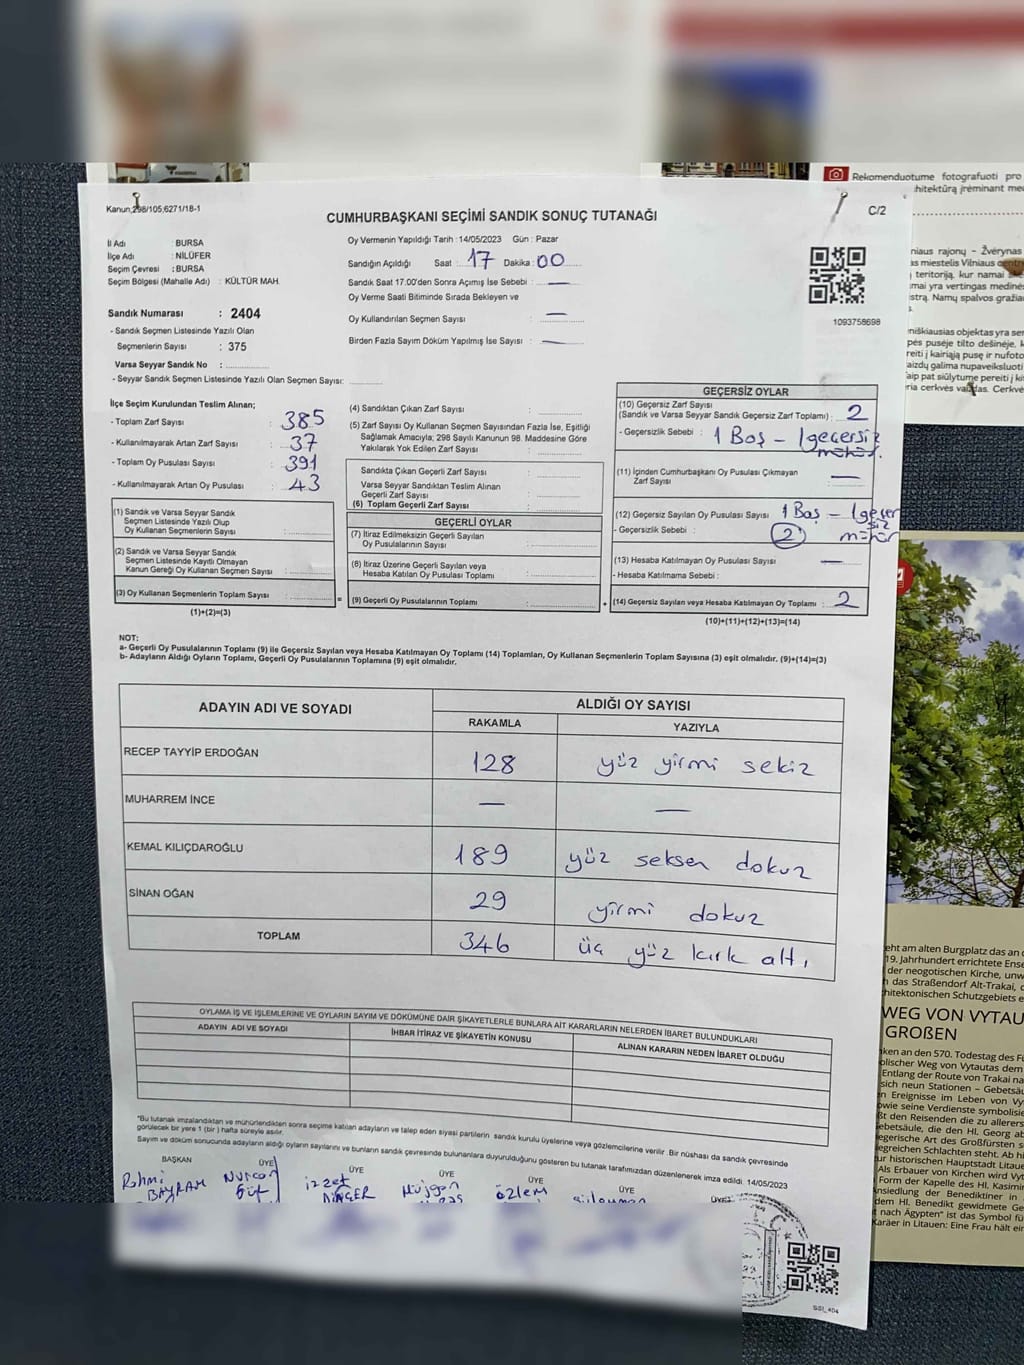 Rekomenduotume fotografuoti pro
Kanun;298/105;6271/18-1
CUMHURBAŞKANI SEÇİMİ SANDIK SONUÇ TUTANAĞI
C/2
İl Adı : BURSA
İlçe Adı : NİLÜFER
Seçim Çevresi : BURSA
Seçim Bölgesi (Mahalle Adı) : KÜLTÜR MAH.
Sandık Numarası : 2404
- Sandık Seçmen Listesinde Yazılı Olan
Seçmenlerin Sayısı : 375
Varsa Seyyar Sandık No :
- Seyyar Sandık Seçmen Listesinde Yazılı Olan Seçmen Sayısı:
Oy Vermenin Yapıldığı Tarih : 14/05/2023 Gün : Pazar
Sandığın Açıldığı Saat : 17 Dakika : 00
Sandık Saat 17.00'den Sonra Açımış İse Sebebi : —
Oy Verme Saati Bitiminde Sırada Bekleyen ve
Oy Kullandırılan Seçmen Sayısı : —
Birden Fazla Sayım Döküm Yapılmış İse Sayısı : —
1093758698
İlçe Seçim Kurulundan Teslim Alınan;
- Toplam Zarf Sayısı : 385
- Kullanılmayarak Artan Zarf Sayısı : 37
- Toplam Oy Pusulası Sayısı : 391
- Kullanılmayarak Artan Oy Pusulası : 43
(1) Sandık ve Varsa Seyyar Sandık
Seçmen Listesinde Yazılı Olup
Oy Kullanan Seçmenlerin Sayısı :
(2) Sandık ve Varsa Seyyar Sandık
Seçmen Listesinde Kayıtlı Olmayan
Kanun Gereği Oy Kullanan Seçmen Sayısı :
(3) Oy Kullanan Seçmenlerin Toplam Sayısı :
(1)+(2)=(3)
(4) Sandıktan Çıkan Zarf Sayısı :
(5) Zarf Sayısı Oy Kullanan Seçmen Sayısından Fazla İse, Eşitliği
Sağlamak Amacıyla; 298 Sayılı Kanunun 98. Maddesine Göre
Yakılarak Yok Edilen Zarf Sayısı :
Sandıkta Çıkan Geçerli Zarf Sayısı :
Varsa Seyyar Sandıktan Teslim Alınan
Geçerli Zarf Sayısı :
(6) Toplam Geçerli Zarf Sayısı :
GEÇERLİ OYLAR
(7) İtiraz Edilmeksizin Geçerli Sayılan
Oy Pusulalarının Sayısı :
(8) İtiraz Üzerine Geçerli Sayılan veya
Hesaba Katılan Oy Pusulası Toplamı :
(9) Geçerli Oy Pusulalarının Toplamı :
GEÇERSİZ OYLAR
(10) Geçersiz Zarf Sayısı
(Sandık ve Varsa Seyyar Sandık Geçersiz Zarf Toplamı) : 2
- Geçersizlik Sebebi : 1 Boş - 1 geçersiz
mühür.
(11) İçinden Cumhurbaşkanı Oy Pusulası Çıkmayan
Zarf Sayısı : —
(12) Geçersiz Sayılan Oy Pusulası Sayısı : 1 Boş - 1 geçer
siz
- Geçersizlik Sebebi : 2 mühür
(13) Hesaba Katılmayan Oy Pusulası Sayısı : —
- Hesaba Katılmama Sebebi :
(14) Geçersiz Sayılan veya Hesaba Katılmayan Oy Toplamı : 2
(10)+(11)+(12)+(13)=(14)
NOT:
a- Geçerli Oy Pusulalarının Toplamı (9) ile Geçersiz Sayılan veya Hesaba Katılmayan Oy Toplamı (14) Toplamları, Oy Kullanan Seçmenlerin Toplam Sayısına (3) eşit olmalıdır. (9)+(14)=(3)
b- Adayların Aldığı Oyların Toplamı, Geçerli Oy Pusulalarının Toplamına (9) eşit olmalıdır.
ADAYIN ADI VE SOYADI ALDIĞI OY SAYISI
RAKAMLA YAZIYLA
RECEP TAYYİP ERDOĞAN 128 yüz yirmi sekiz
MUHARREM İNCE — —
KEMAL KILIÇDAROĞLU 189 yüz seksen dokuz
SİNAN OĞAN 29 yirmi dokuz
TOPLAM 346 üç yüz kırk altı
OYLAMA İŞ VE İŞLEMLERİNE VE OYLARIN SAYIM VE DÖKÜMÜNE DAİR ŞİKAYETLERLE BUNLARA AİT KARARLARIN NELERDEN İBARET BULUNDUKLARI
ADAYIN ADI VE SOYADI İHBAR İTİRAZ VE ŞİKAYETİN KONUSU ALINAN KARARIN NEDEN İBARET OLDUĞU
"Bu tutanak imzalandıktan ve mühürlendikten sonra seçime katılan adayların ve talep eden siyasi partilerin sandık kurulu üyelerine veya gözlemcilerine verilir. Bir nüshası da sandık çevresinde
görülecek bir yere 1 (bir) hafta süreyle asılır.
Sayım ve döküm sonucunda adayların aldığı oyların sayılarını ve bunların sandık çevresinde bulunanlara duyurulduğunu gösteren bu tutanak tarafımızdan düzenlenerek imza edildi. 14/05/2023
BAŞKAN ÜYE ÜYE ÜYE ÜYE ÜYE
Rahmi Nurcan izzet Müjgan özlem Süleyman
BAYRAM DİNÇER
SSI_404
eht am alten Burgplatz das an d
19. Jahrhundert errichtete Ense
der neogotischen Kirche, unw
das Straßendorf Alt-Trakai, d
hitektonischen Schutzgebietes e
WEG VON VYTAU
GROßEN
ken an den 570. Todestag des Fü
olischer Weg von Vytautas dem
Entlang der Route von Trakai na
sich neun Stationen – Gebetsäu
en Ereignisse im Leben von Vy
owie seine Verdienste symbolisie
ßt den Reisenden die zu allerers
ebetsäule, die den Hl. Georg ab
egerische Art des Großfürsten s
egreichen Schlachten steht. Ab hi
ur historischen Hauptstadt Litaue
Als Erbauer von Kirchen wird Vyt
Form der Kapelle des Hl. Kasimi
nsiedlung der Benediktiner in
dem Hl. Benedikt gewidmete Ge
nach Ägypten" ist das Symbol fü
Karäer in Litauen: Eine Frau hält ein